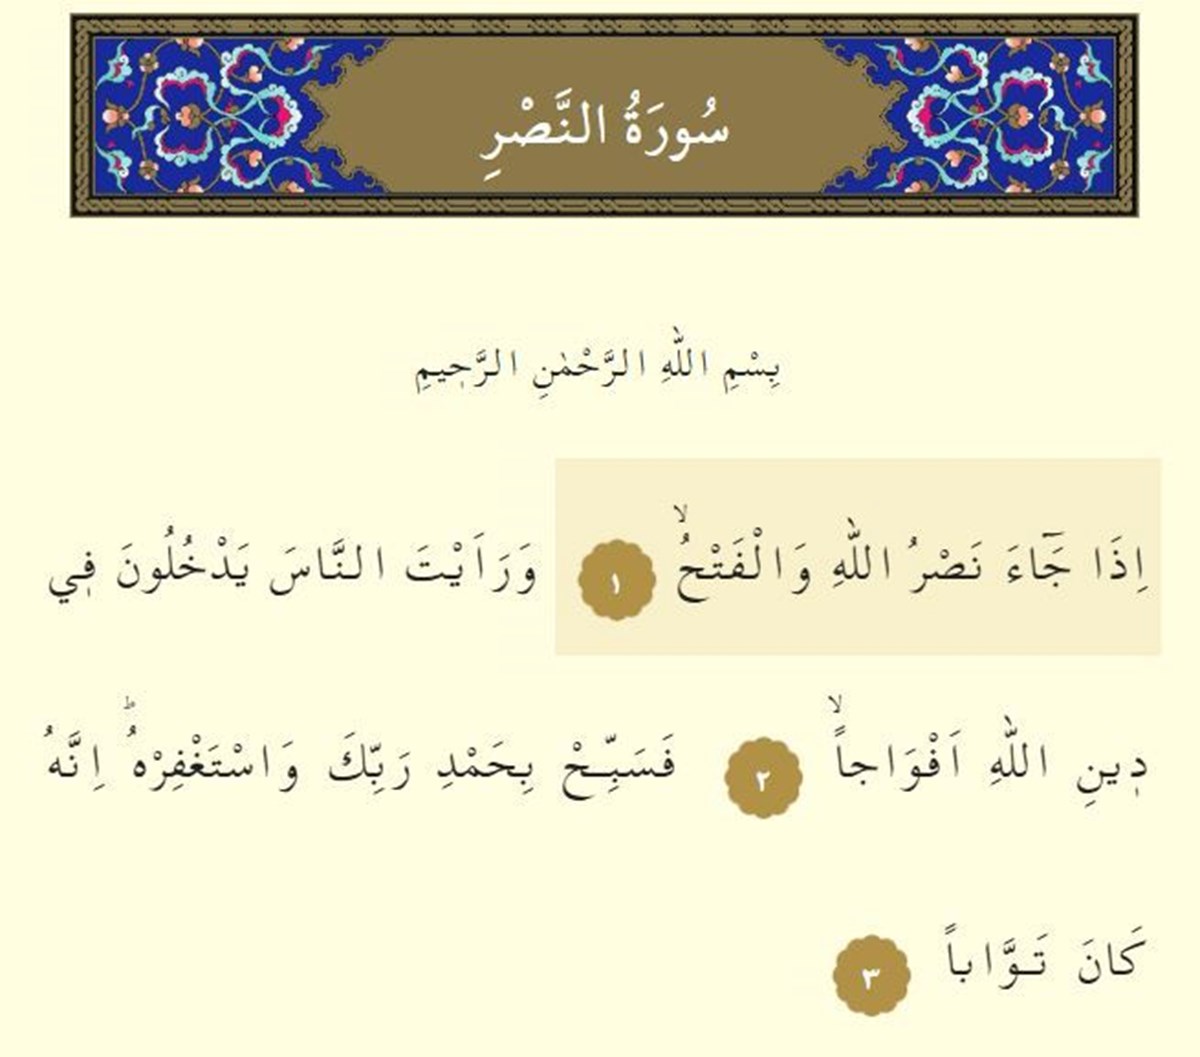 سُورَةُ النَّصْرِ
بِسْمِ اللّٰهِ الرَّحْمٰنِ الرَّح۪يمِ
اِذَا جَٓاءَ نَصْرُ اللّٰهِ وَالْفَتْحُۙ ١ وَرَاَيْتَ النَّاسَ يَدْخُلُونَ ف۪ي
د۪ينِ اللّٰهِ اَفْوَاجاًۙ ٢ فَسَبِّـحْ بِحَمْدِ رَبِّكَ وَاسْتَغْفِرْهُۜ اِنَّهُ
كَانَ تَـوَّاباً ٣